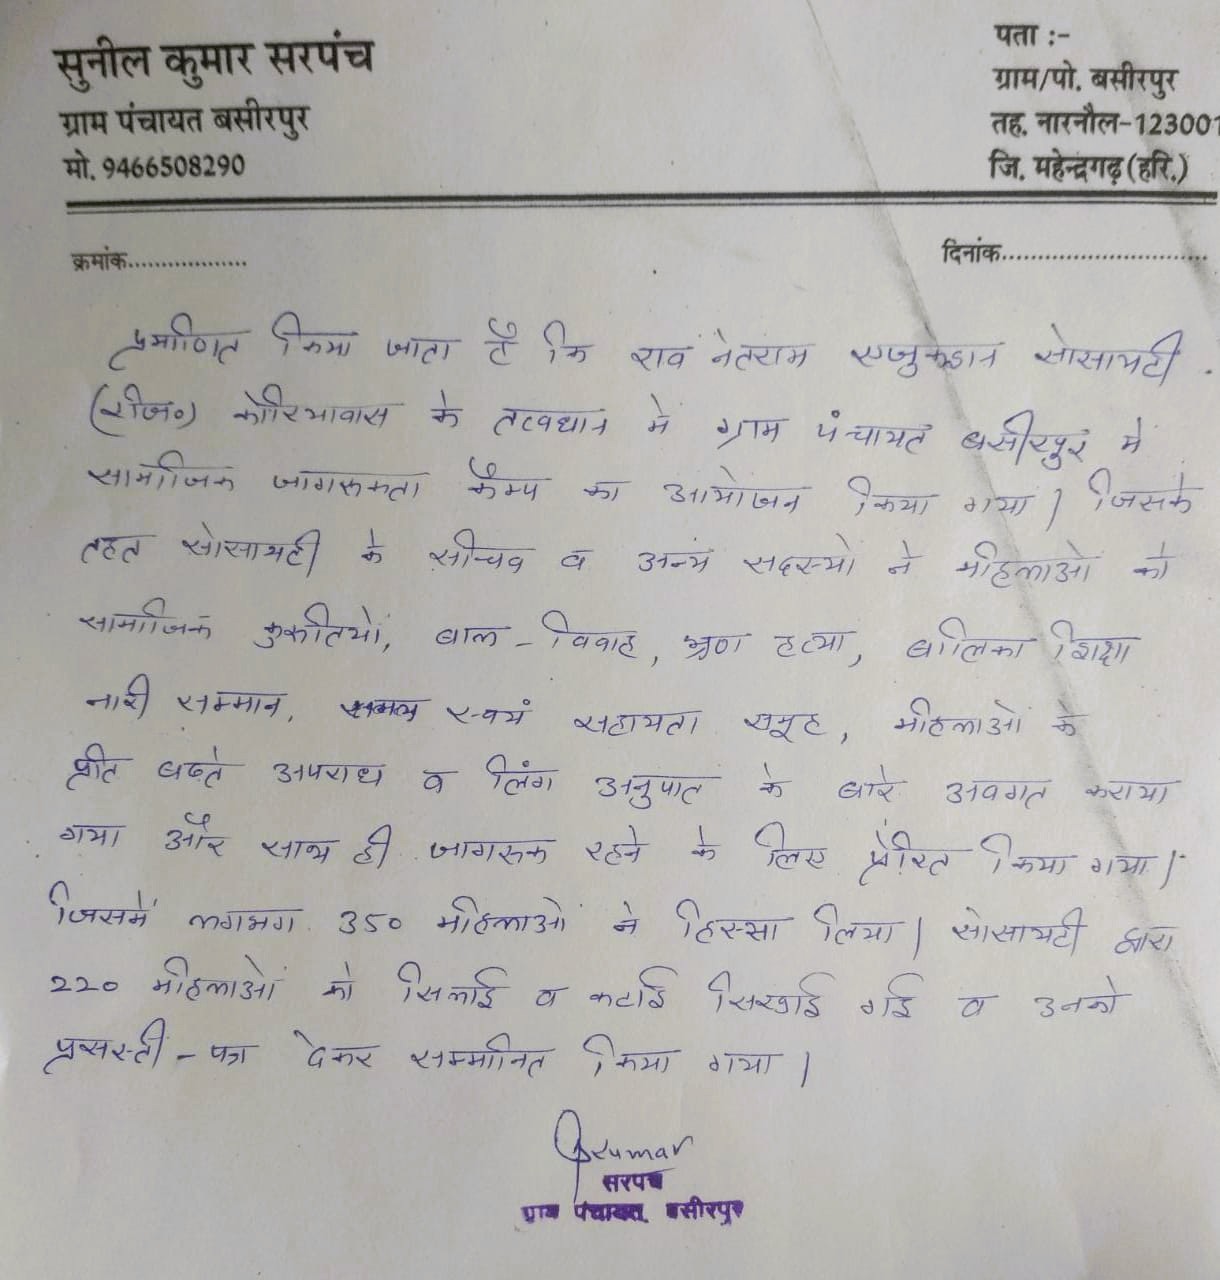 सुनील कुमार सरपंच
ग्राम पंचायत बसीरपुर
मो. 9466508290
पता :-
ग्राम/पो. बसीरपुर
तह. नारनौल-123001
जि. महेन्द्रगढ़ (हरि.)
क्रमांक..................
दिनांक.............................
प्रमाणित किया जाता है कि राव नेतराम एजुकेशन सोसायटी
(रजि०) कोरियावास के तत्वधान मे ग्राम पंचायत बसीरपुर मे
सामाजिक जागरूकता कैम्प का आयोजन किया गया। जिसके
तहत सोसायटी के सचिव व अन्य सदस्यो ने महिलाओं को
सामाजिक कुरूतियों, बाल-विवाह, भ्रूण हत्या, बालिका शिक्षा
नारी सम्मान, स्वयं सहायता समूह, महिलाओं के
प्रति बढते अपराध व लिंग अनुपात के बारे अवगत कराया
गया और साथ ही जागरूक रहने के लिए प्रेरित किया गया।
जिसमें लगभग 350 महिलाओं ने हिस्सा लिया। सोसायटी द्वारा
220 महिलाओं को सिलाई व कटाई सिखाई गई व उनको
प्रसस्ती-पत्र देकर सम्मानित किया गया।
सरपंच
ग्राम पंचायत बसीरपुर